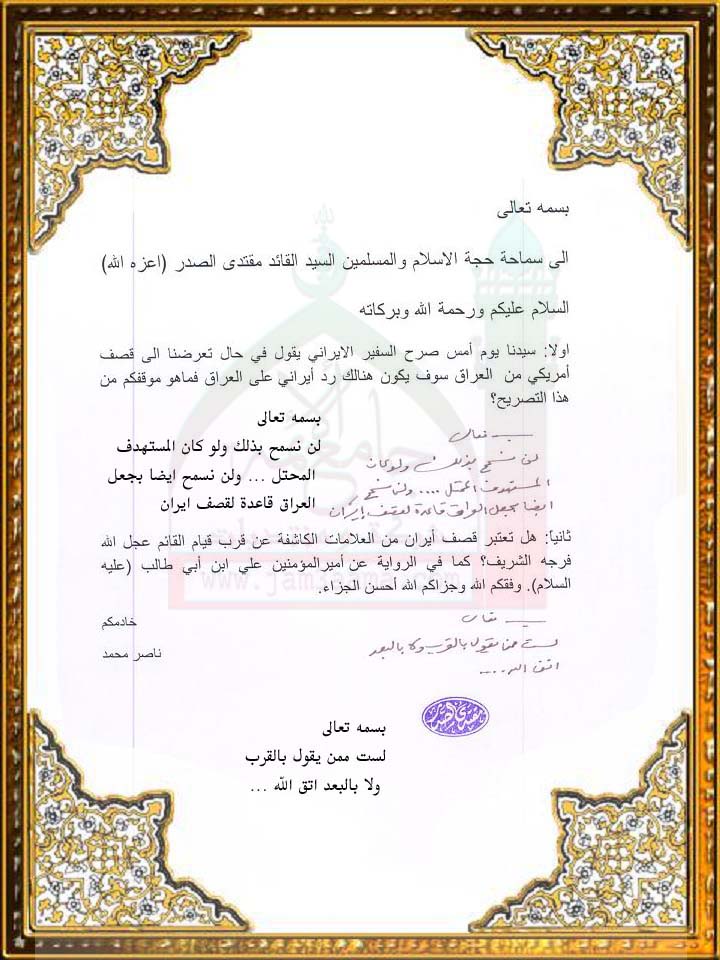 بسمه تعالى
الى سماحة حجة الاسلام والمسلمين السيد القائد مقتدى الصدر (اعزه الله)
السلام عليكم ورحمة الله وبركاته
اولا: سيدنا يوم أمس صرح السفير الايراني يقول في حال تعرضنا الى قصف
أمريكي من العراق سوف يكون هنالك رد أيراني على العراق فماهو موقفكم من
هذا التصريح؟
بسمه تعالى
لن نسمح بذلك ولو كان المستهدف
المحتل ... ولن نسمح ايضا بجعل
العراق قاعدة لقصف ايران
بسمه تعالى
لن نسمح بذلك ولو كان
المستهدف المحتل .... ولن نسمح
ايضا بجعل العراق قاعدة لقصف إيران
ثانيا: هل تعتبر قصف أيران من العلامات الكاشفة عن قرب قيام القائم عجل الله
فرجه الشريف؟ كما في الرواية عن أميرالمؤمنين علي ابن أبي طالب (عليه
السلام). وفقكم الله وجزاكم الله أحسن الجزاء.
www.jam3aama.com
خادمكم
ناصر محمد
بسمه تعالى
لست ممن يقول بالقرب ولا بالبعد
اتق الله ....
بسمه تعالى
لست ممن يقول بالقرب
ولا بالبعد اتق الله ...